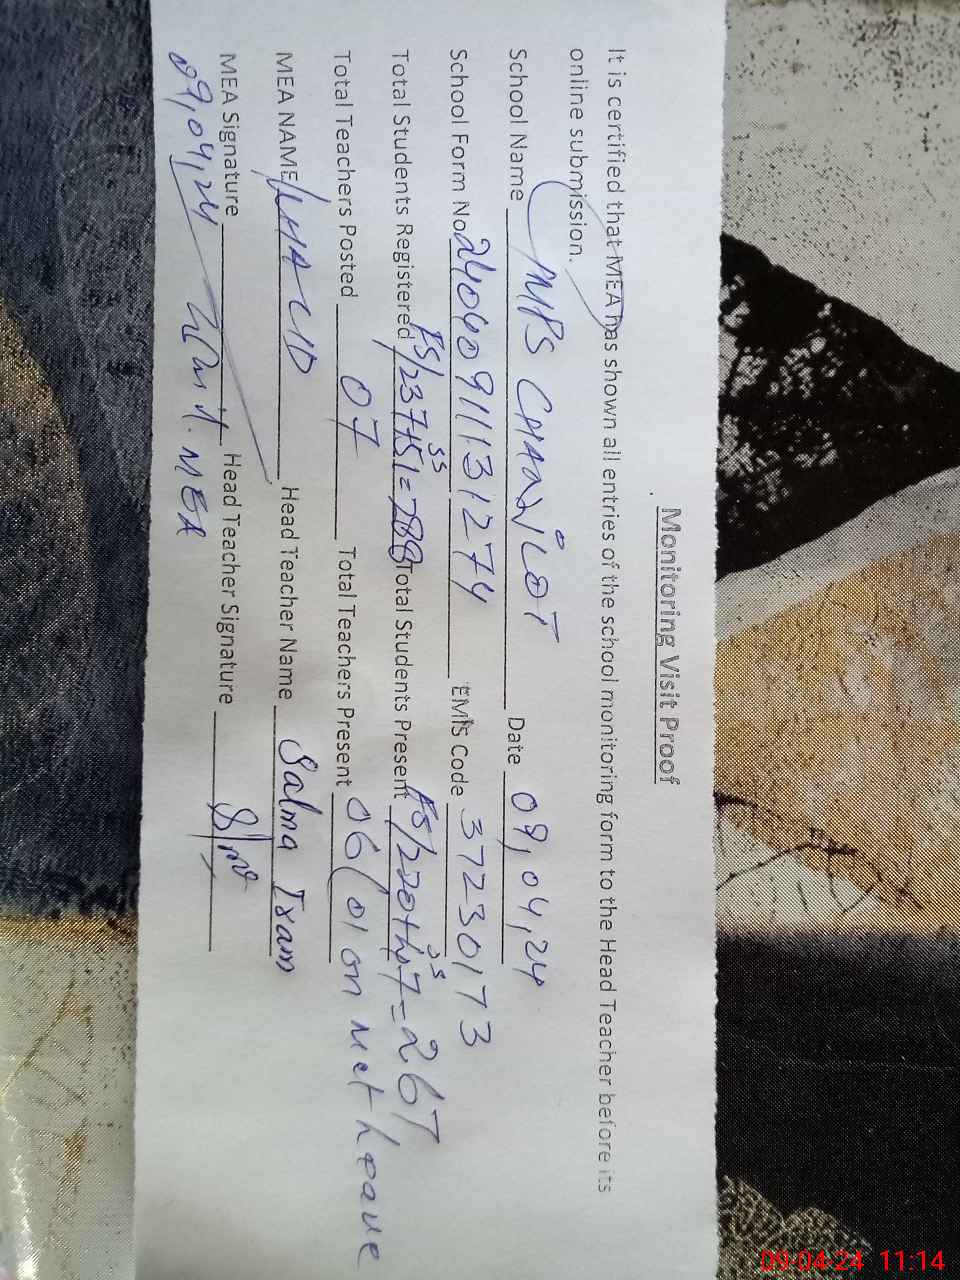 Monitoring Visit Proof
It is certified that MEA has shown all entries of the school monitoring form to the Head Teacher before its
online submission.
School Name MPS CHAN COT Date 09,04,24
School Form No 240409111131274 EMIS Code 37230173
Total Students Registered ES/237+51=288 SS Total Students Present ES/220+47=267 SS
Total Teachers Posted 07 Total Teachers Present 06(01 on Mat leave
MEA NAME Head Teacher Name Salma Ixam
MEA Signature M. MEA Head Teacher Signature
09,04,24
09-04-24 11:14